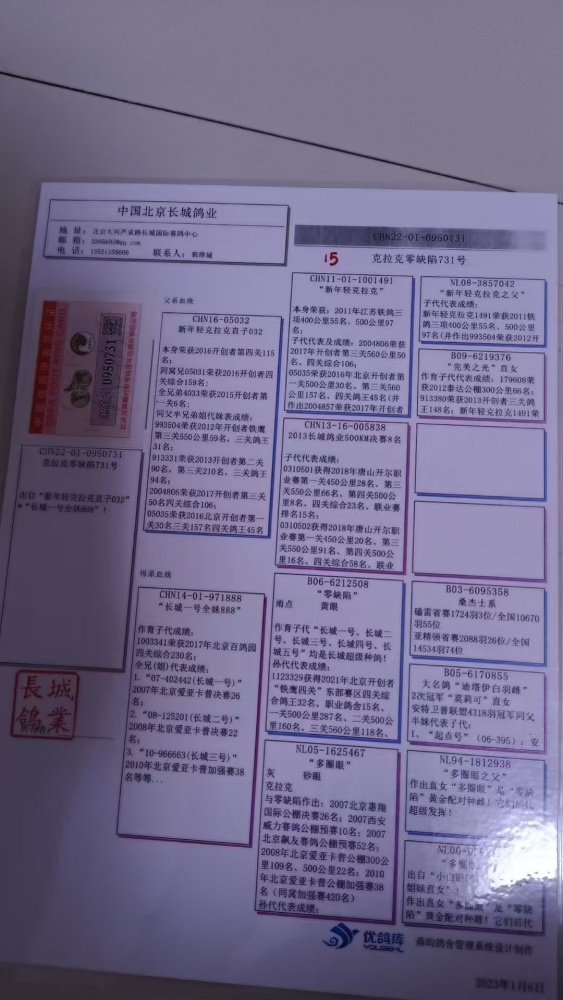 中国北京长城鸽业
地 址：北京大兴芦求路长城国际赛鸽中心
邮 箱：3266695@qq.com
电 话：13521358666 联系人：郭彦城
CHN22-01-0950731
15 克拉克零缺陷731号
0950731
CHN22-01-0950731
克拉克零缺陷731号
出自“新年轻克拉克直子032”
*“长城一号全妹888”！
長城
鴿業
父系血统
CHN16-05032
新年轻克拉克直子032
本身荣获2016开创者第四关115
名；
同窝兄05031荣获2016开创者四
关综合159名；
全兄弟4033荣获2015开创者第
一关6名；
同父半兄弟姐代妹表成绩：
993504荣获2012年开创者铁鹰
第三关550公里59名，三关鸽王
31名；
913331荣获2013开创者第二关
90名，第三关210名，三关鸽王
94名；
2004806荣获2017开创者第三关
50名四关综合106；
05035荣获2016北京开创者第一
关30名三关157名四关鸽王45名
母系血统
CHN14-01-971888
“长城一号全妹888”
作育子代成绩：
1003341荣获2017年北京百鸽园
四关综合230名；
全兄(姐)代表成绩：
1、“07-402442(长城一号)”
2007年北京爱亚卡普决赛26
名；
2、“08-125201(长城二号)”
2008年北京爱亚卡普决赛22
名；
3、“10-966663(长城三号)”
2010年北京爱亚卡普加强赛38
名等等...
CHN11-01-1001491
“新年轻克拉克”
本身荣获：2011年江苏铁鸽三
项400公里55名、500公里97
名；
子代代表及成绩：2004806荣获
2017年开创者第三关560公里50
名，四关综合106名；
05035荣获2016年北京开创者第
一关500公里30名，第三关560
公里157名，四关鸽王45名(并
作出2004857荣获2017年开创者
CHN13-16-005838
2013长城鸽业500KM决赛8名
子代代表成绩：
0310501获得2018年唐山开尔职
业赛第一关450公里28名、第三
关550公里66名、第四关500公
里8名、四关综合23名、联业赛
排名15名；
0310502获得2018年唐山开尔职
业赛第一关450公里20名、第三
关550公里91名、第四关500公
里16名、四关综合58名、联业
B06-6212508
“零缺陷”
雨点 黄眼
作育子代“长城一号、长城二
号、长城三号、长城四号、长
城五号”均是长城超级种鸽！
孙代代表成绩：
1123329获得2021年北京开创者
“铁鹰四关”东部赛区四关综
合鸽王32名、职业鸽舍15名、
一关500公里287名、二关500公
里160名、三关560公里118名、
NL05-1625467
“多圈眼”
灰 砂眼
克拉克
与零缺陷作出：2007北京惠翔
国际公棚决赛26名；2007西安
威力赛鸽公棚预赛10名；2007
北京飙友赛鸽公棚预赛52名；
2008年北京爱亚卡普公棚300公
里109名、500公里22名；2010
年北京爱亚卡普公棚加强赛38
名（同窝加强赛420名）
孙代代表成绩：
NL08-3857042
“新年轻克拉克之父”
子代代表成绩：
新年轻克拉克1491荣获2011铁
鸽三项400公里55名、500公里
97名(并作出993504荣获2012开
B09-6219376
“完美之光”直女
作育子代代表成绩：179608荣
获2012泰达公棚300公里66名；
913380荣获2013开创者三关鸽
王148名；新年轻克拉克1491荣
B03-6095358
桑杰士系
磕雷省赛1724羽3位/全国10670
羽55位
亚精顿省赛2088羽26位/全国
14534羽74位
B05-6170855
大名鸽“迪塔伊白羽雌”
2次冠军“莫莉可”直女
安特卫普联盟4318羽冠军同父
半妹代表子代：
1、“起点号”（06-395）：安
NL94-1812938
“多圈眼之父”
作出直女“多圈眼”是“零缺
陷”黄金配对种雌！它们后代
超级发挥！
“多圈眼
出自“小白
姐妹直女”！
作出直女“多圈眼”是“零缺
陷”黄金配对种雌！它们后代
优鸽库
YOUGEKU
鼎昀鸽舍管理系统设计制作
2023年1月6日